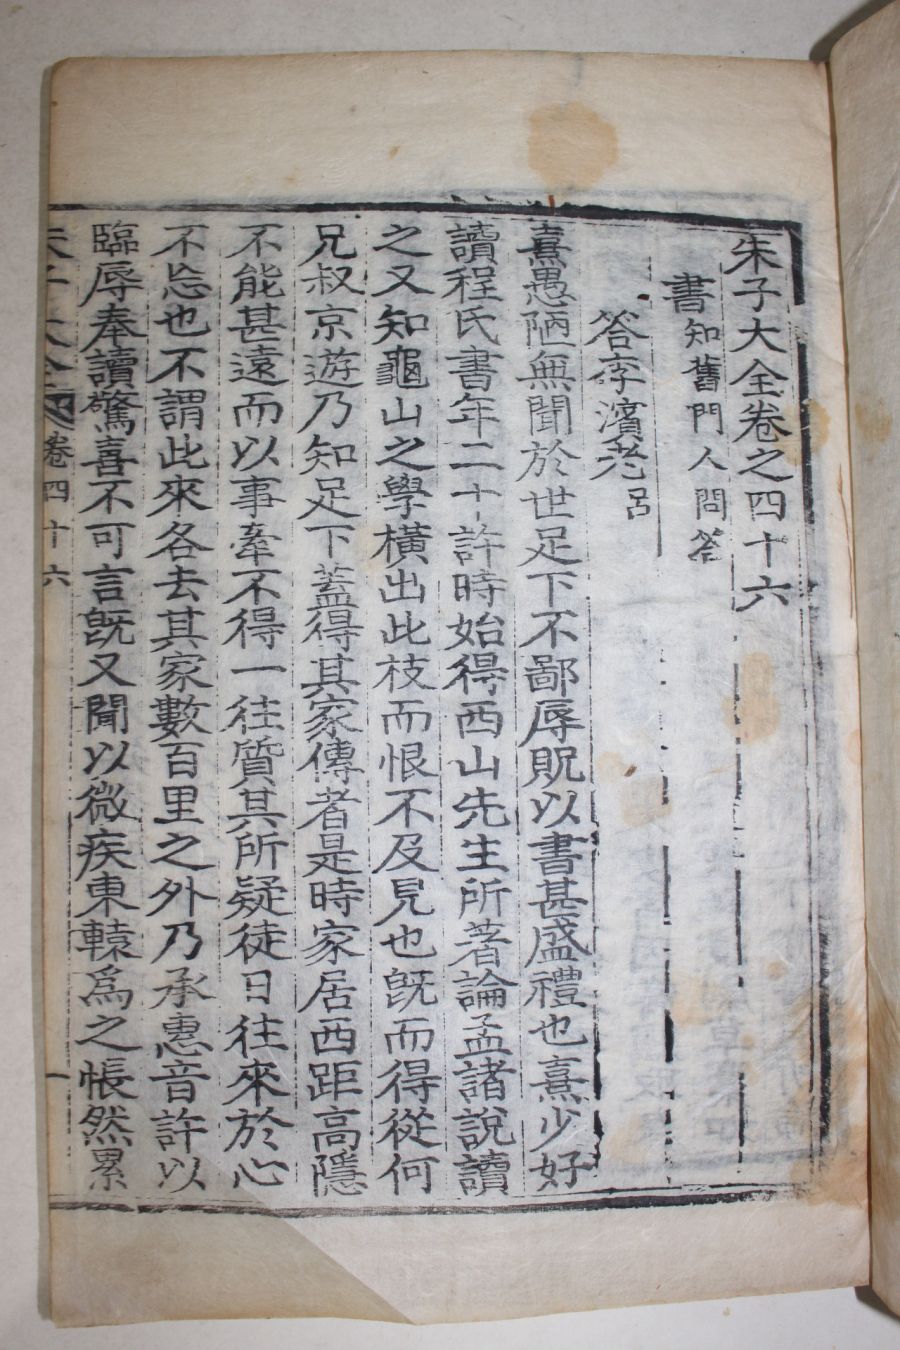 朱子大全卷之四十六
書 知舊門人問答
答李濱老 呂
熹愚陋無聞於世足下不鄙辱貺以書甚盛禮也熹少好
讀程氏書年二十許時始得西山先生所著論孟諸說讀
之又知龜山之學橫出此枝而恨不及見也旣而得從何
兄叔京遊乃知足下蓋得其家傳者是時家居西距高隱
不能甚遠而以事牽不得一往質其所疑徒日往來於心
不忘也不謂此來各去其家數百里之外乃承惠音許以
臨辱奉讀驚喜不可言旣又聞以微疾東轅爲之悵然累
朱子大全 卷四十六 一